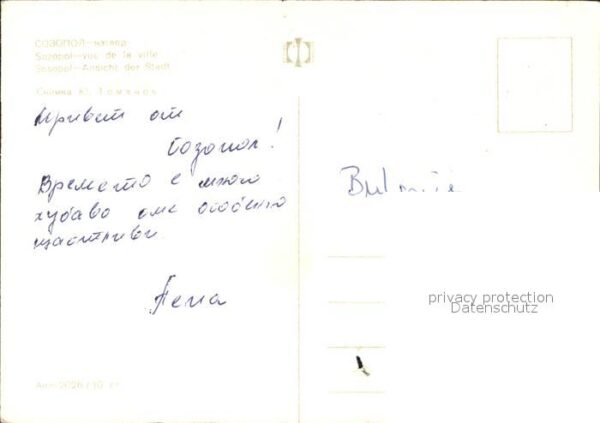 СОЗОПОЛ—изглед
Sozopol—vue de la ville
Sosopol—Ansicht der Stadt
Снимка Ю.
Привет от
Созопол!
Времето е много
хубаво сме особено
щастливи.
Пепа
privacy protection
Datenschutz